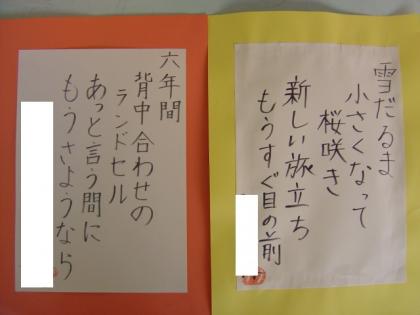 雪だるま
小さくなって
桜咲き
新しい旅立ち
もうすぐ目の前
六年間
背中合わせの
ランドセル
あっと言う間に
もうさようなら